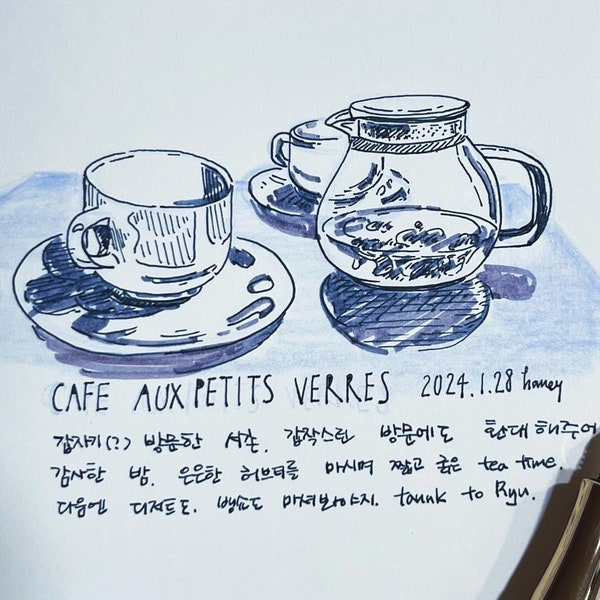 CAFE AUX PETITS VERRES 2024.1.28 haney
갑자기(?) 방문한 서촌. 갑작스런 방문에도 환대해주어
감사한 밤. 은은한 허브티를 마시며 짧고 굵은 tea time.
다음엔 디저트도. 뱅쇼도 마셔봐야지. taunk to Ryu.